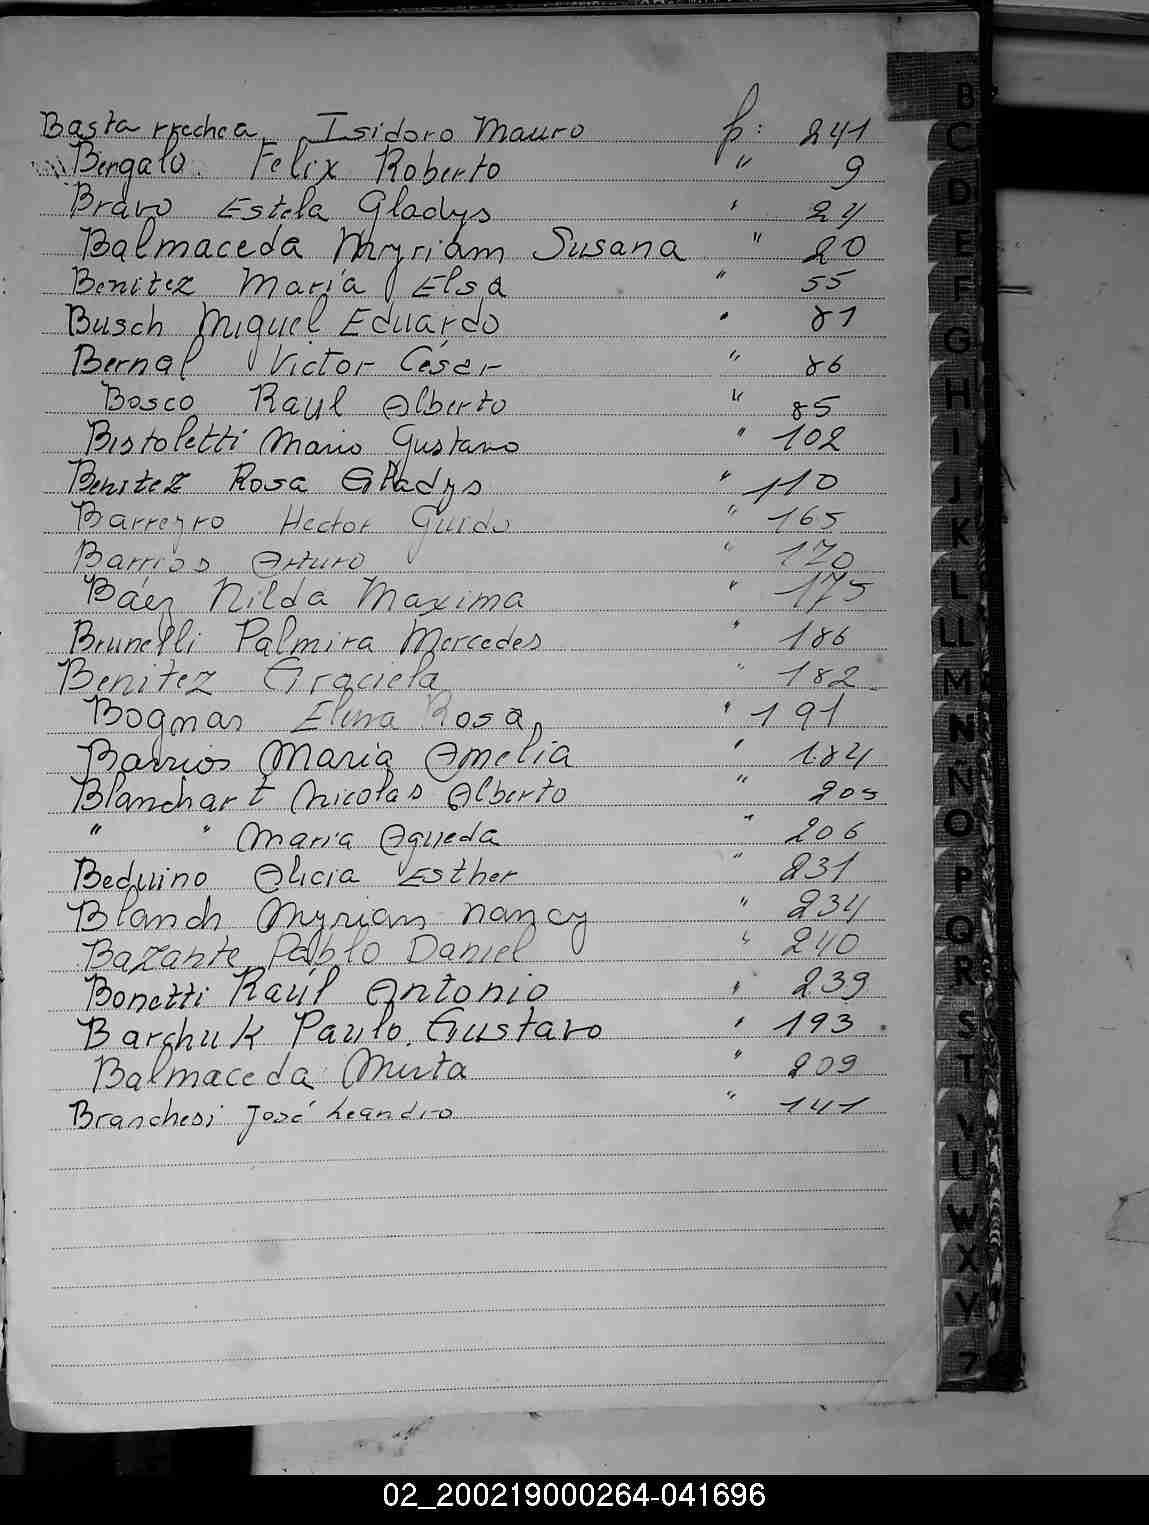 Bastarrechea Isidoro Mauro p: 241
Bergalo. Felix Roberto " 9
Bravo Estela Gladys " 24
Balmaceda Myriam Susana " 20
Benitez María Elsa " 55
Busch Miguel Eduardo " 81
Bernal Victor César " 86
Bosco Raul Alberto " 85
Bistoletti Mario Gustavo " 102
Benitez Rosa Gladys " 110
Barreyro Hector Guido " 165
Barrios Arturo " 170
Báez Nilda Maxima " 175
Brunelli Palmira Mercedes " 186
Benitez Graciela " 182
Bogman Elena Rosa " 191
Barrios Maria Amelia " 184
Blanchart Nicolas Alberto " 205
" " Maria Agueda " 206
Beduino Alicia Esther " 231
Blanch Myrian Nancy " 234
Bazante Pablo Daniel " 240
Bonetti Raúl Antonio " 239
Barchuk Paulo Gustavo " 193
Balmaceda Mirta " 209
Branchesi José Leandro " 141
B
C
D
E
F
G
H
I
J
K
L
LL
M
N
Ñ
O
P
Q
R
S
T
V
U
W
X
Y
Z
02_200219000264-041696